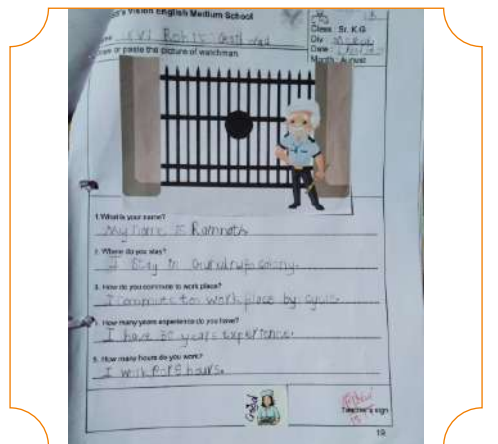 Vision English Medium School
Class : Sr. K.G
Div
Date :
Month: August
or paste the picture of watchman.
1.What is your name?
My name is Ramnath
2. Where do you stay?
I stay in colony.
3. How do you commute to work place?
I commute to work place by cycle.
4. How many years experience do you have?
I have 30 years experience.
5. How many hours do you work?
I work hours.
Teacher's sign
19